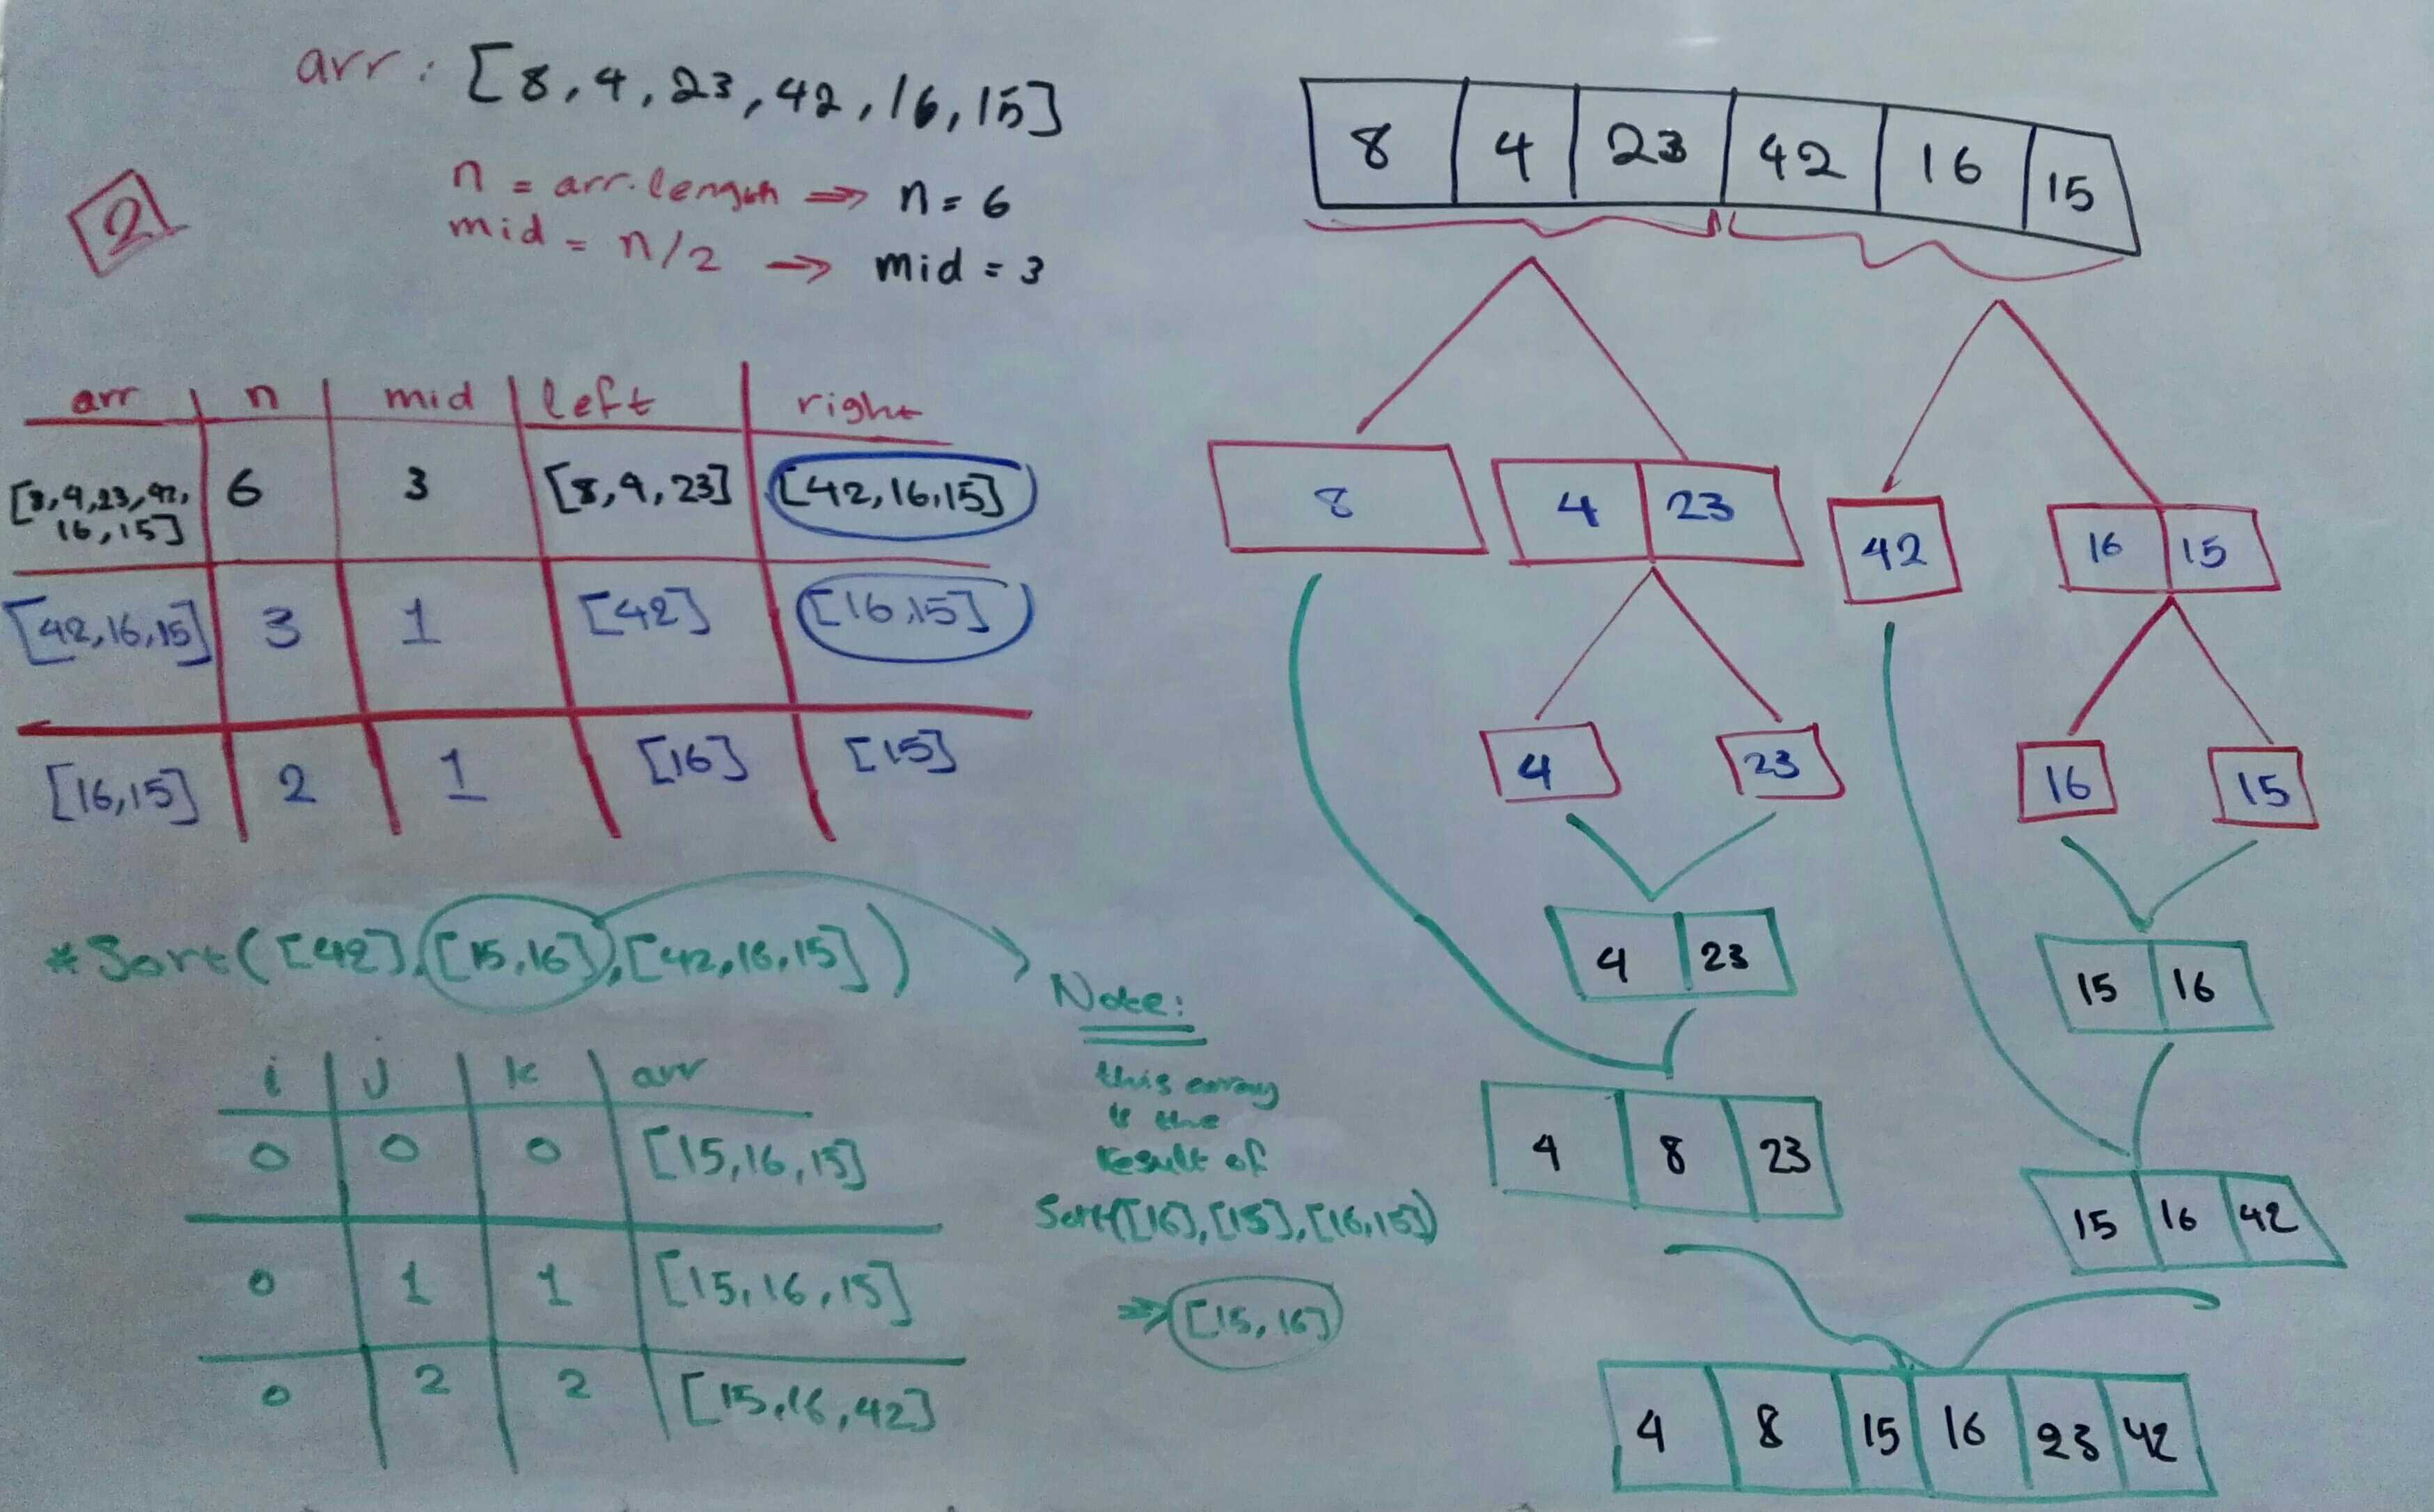 arr: [8,4,23,42,16,15]
2
n = arr.length ⇒ n = 6
mid = n/2 → mid = 3
arr | n | mid | left | right
[8,4,23,42,16,15] | 6 | 3 | [8,4,23] | [42,16,15]
[42,16,15] | 3 | 1 | [42] | [16,15]
[16,15] | 2 | 1 | [16] | [15]
*Sort([42],[15,16],[42,16,15])
i | j | k | arr
0 | 0 | 0 | [15,16,15]
0 | 1 | 1 | [15,16,15]
0 | 2 | 2 | [15,16,42]
Note:
this array
is the
result of
Sort([16],[15],[16,15])
⇒ [15,16]
8 | 4 | 23 | 42 | 16 | 15
8 4 | 23 42 16 | 15
4 23 16 15
4 | 23 15 | 16
4 | 8 | 23 15 | 16 | 42
4 | 8 | 15 | 16 | 23 | 42